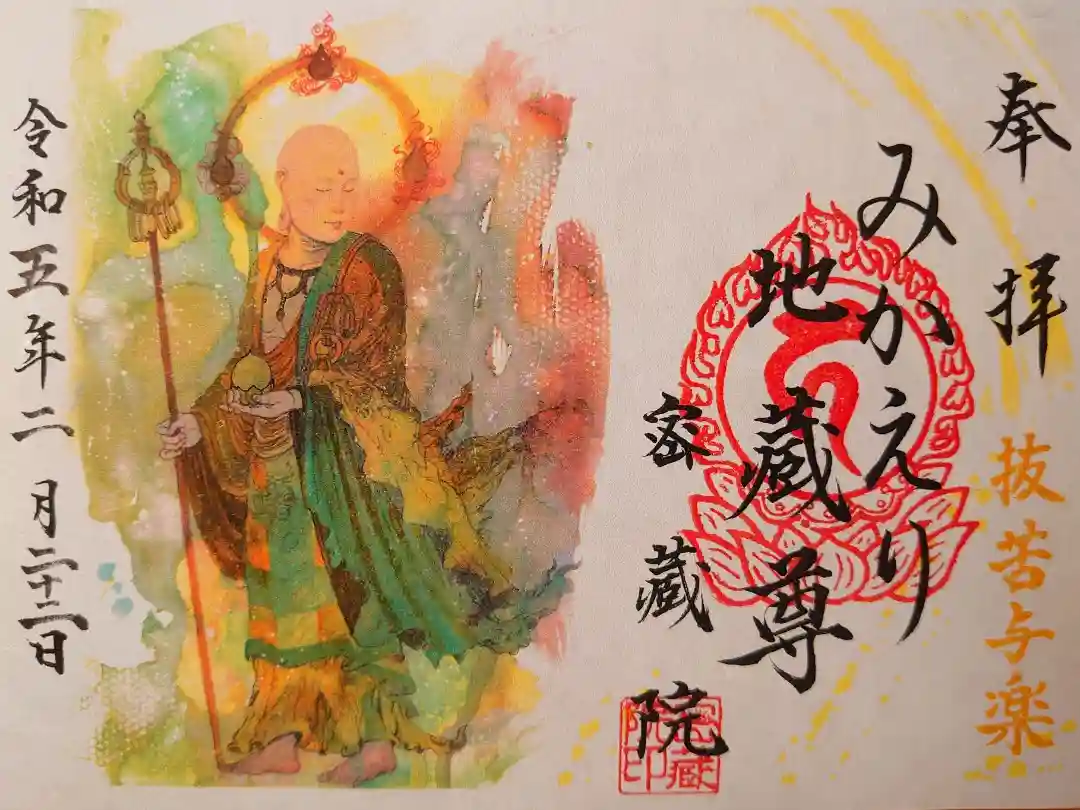 奉拝
抜苦与楽
みかえり
地蔵尊
密蔵院
密蔵
院印
令和五年二月二十二日